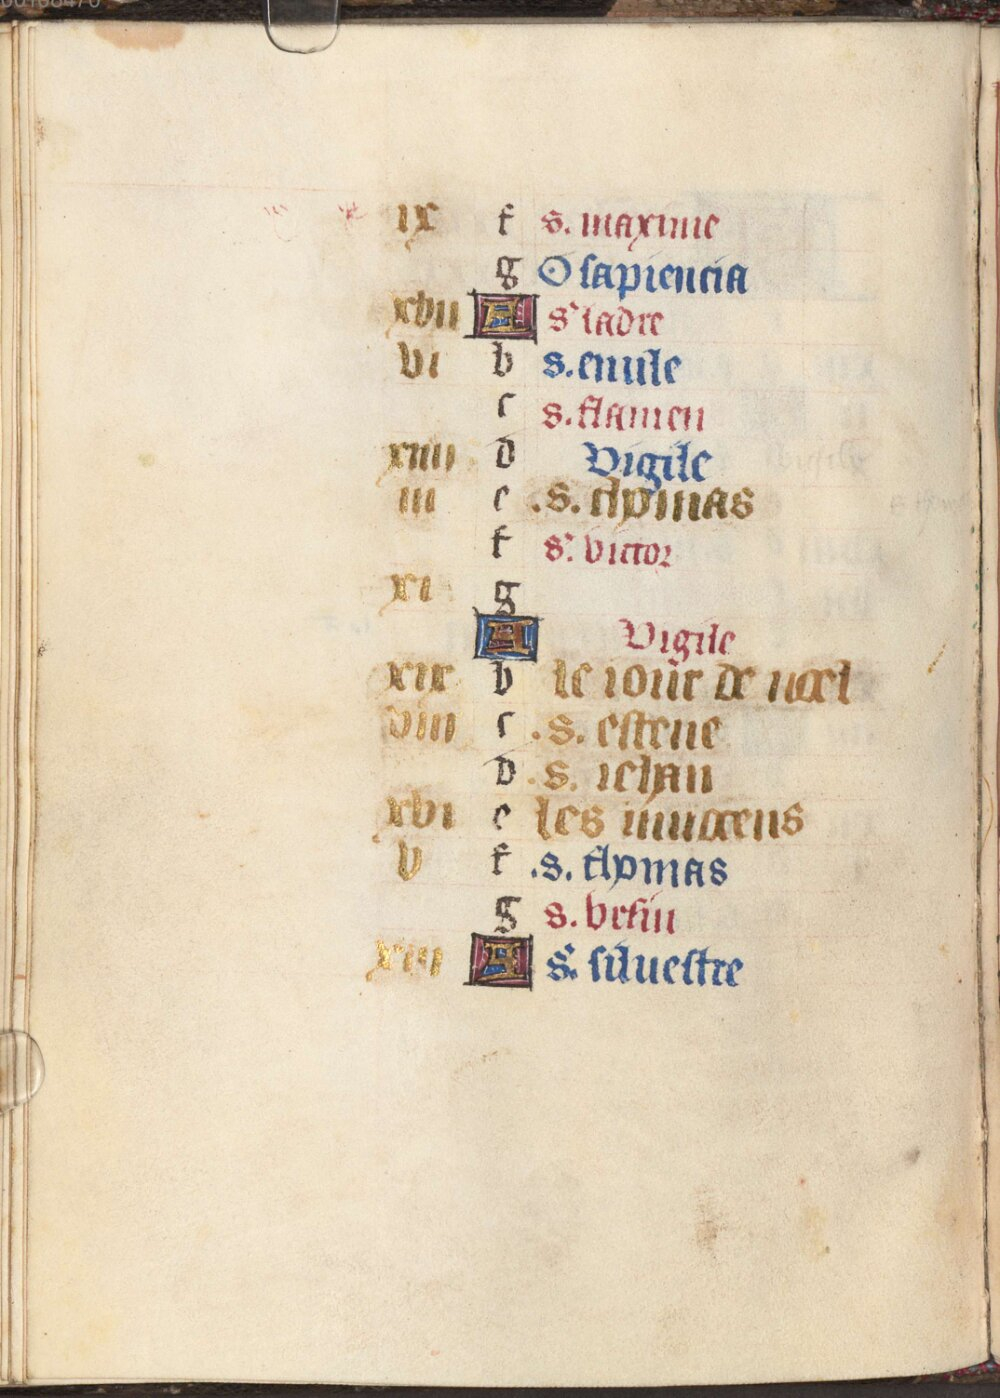 ix f s. maxime
g O sapiencia
xvii A s' ladre
vi b s. emile
c s. flamen
xiiii d Vigile
iii e .s. thomas
f s'. victor
xi g
A Vigile
xix b le iour de noel
viii c .s. estene
d .s. iehan
xvi e les innocens
v f .s. thomas
g s. vrsin
xiii A s'. siluestre